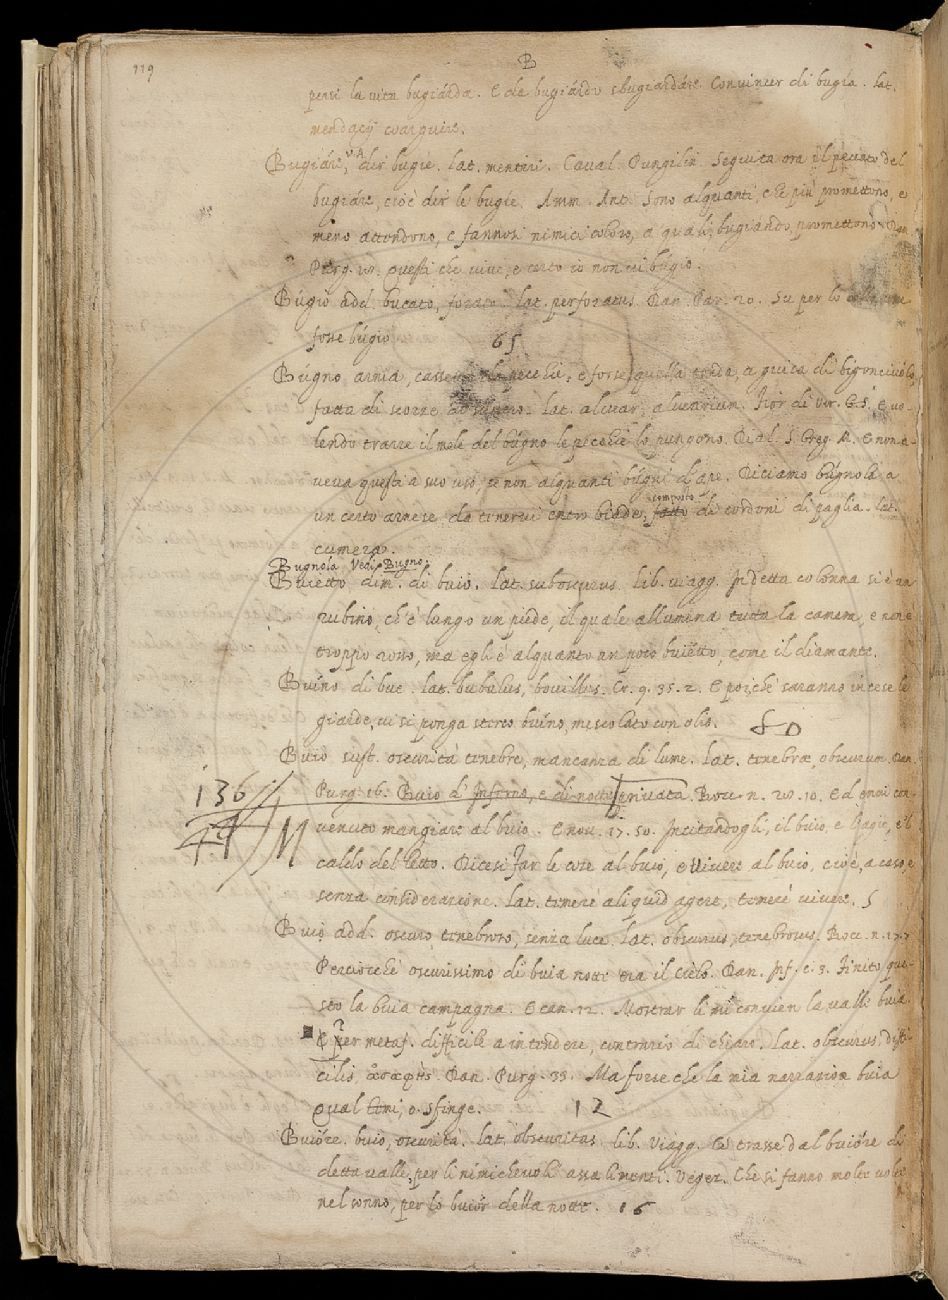 119
B
persi la vita bugiarda. E da bugiardo sbugiardare. Convincer di bugia. lat.
mendacij coarguire.
Bugiare, dir bugie. lat. mentiri. Caval. Pungilin. Seguita ora il peccato del
bugiare, cioè dir le bugie. Amm. Ant. Sono alquanti, che più promettono, e
meno attendono, e fannosi nimici coloro, a quali bugiando promettono
Purg. 18. questi che vive, e certo io non vi bugio.
Bugio add. bucato, forato. lat. perforatus. Dan. Par. 20. Su per lo
fosse bugio.
65
Bugno arnia, cassetta da pecchie, e forse quella tonda, a guisa di bigonciuolo
fatta di scorze. lat. alvear, alvearium. Fior di vir. G. S. E vo-
lendo trarre il mele del bugno le pecchie lo pungono. Dial. S. Greg. M. E non a-
veva questi a suo uso, se non alquanti bugni d'ape. Diciamo bugnola a
un certo arnese, da tenervi entro biade, fatto composto di cordoni di paglia. lat.
cumera.
Bugnola Vedi Bugno.
Buietto dim. di buio. lat. subobscurus. lib. viagg. In detta colonna si è un
rubino, ch'è lungo un piede, il quale allumina tutta la camera, e non è
troppo rosso, ma egli è alquanto un poco buietto, come il diamante.
Buino di bue. lat. bubulus, bovillus. Cr. 9. 35. 2. E poiché saranno incese le
giarde, vi si ponga sterco buino, mescolato con olio.
50
Buio sust. oscurità tenebre, mancanza di lume. lat. tenebræ, obscurum. Dan.
Purg. 16. Buio d'Inferno, e di notte privata. Bocc. n. 28. 10. Ed emmi con-
136
venuto mangiare al buio. E nov. 17. 50. Incitandogli, il buio, e l'agio, e 'l
M
caldo del letto. Dicesi far le cose al buio, e vivere al buio, cioè, a caso, e
senza considerazione. lat. temerè aliquid agere, temerè vivere. S
Buio add. oscuro tenebroso, senza luce. lat. obscurus, tenebrosus. Bocc. n. 17. 7.
Perciocchè oscurissimo di buia notte era il cielo. Dan. Inf. c. 3. Finito que-
sto la buia campagna. E can. 12. Mostrar li mi convien la valle buia.
E per metaf. difficile a intendere, contrario di chiaro. lat. obscurus, diffi-
cilis, ἀσαφής. Dan. Purg. 33. Ma forse che la mia narrazion buia
Qual Temi, o Sfinge.
12
Buiore. buio, oscurità. lat. obscuritas. lib. Viagg. E trasse d'al buiore di
detta valle, per li nimichevoli assalimenti. Veget. Che si fanno molte volte
nel sonno, per lo buior della notte.
16